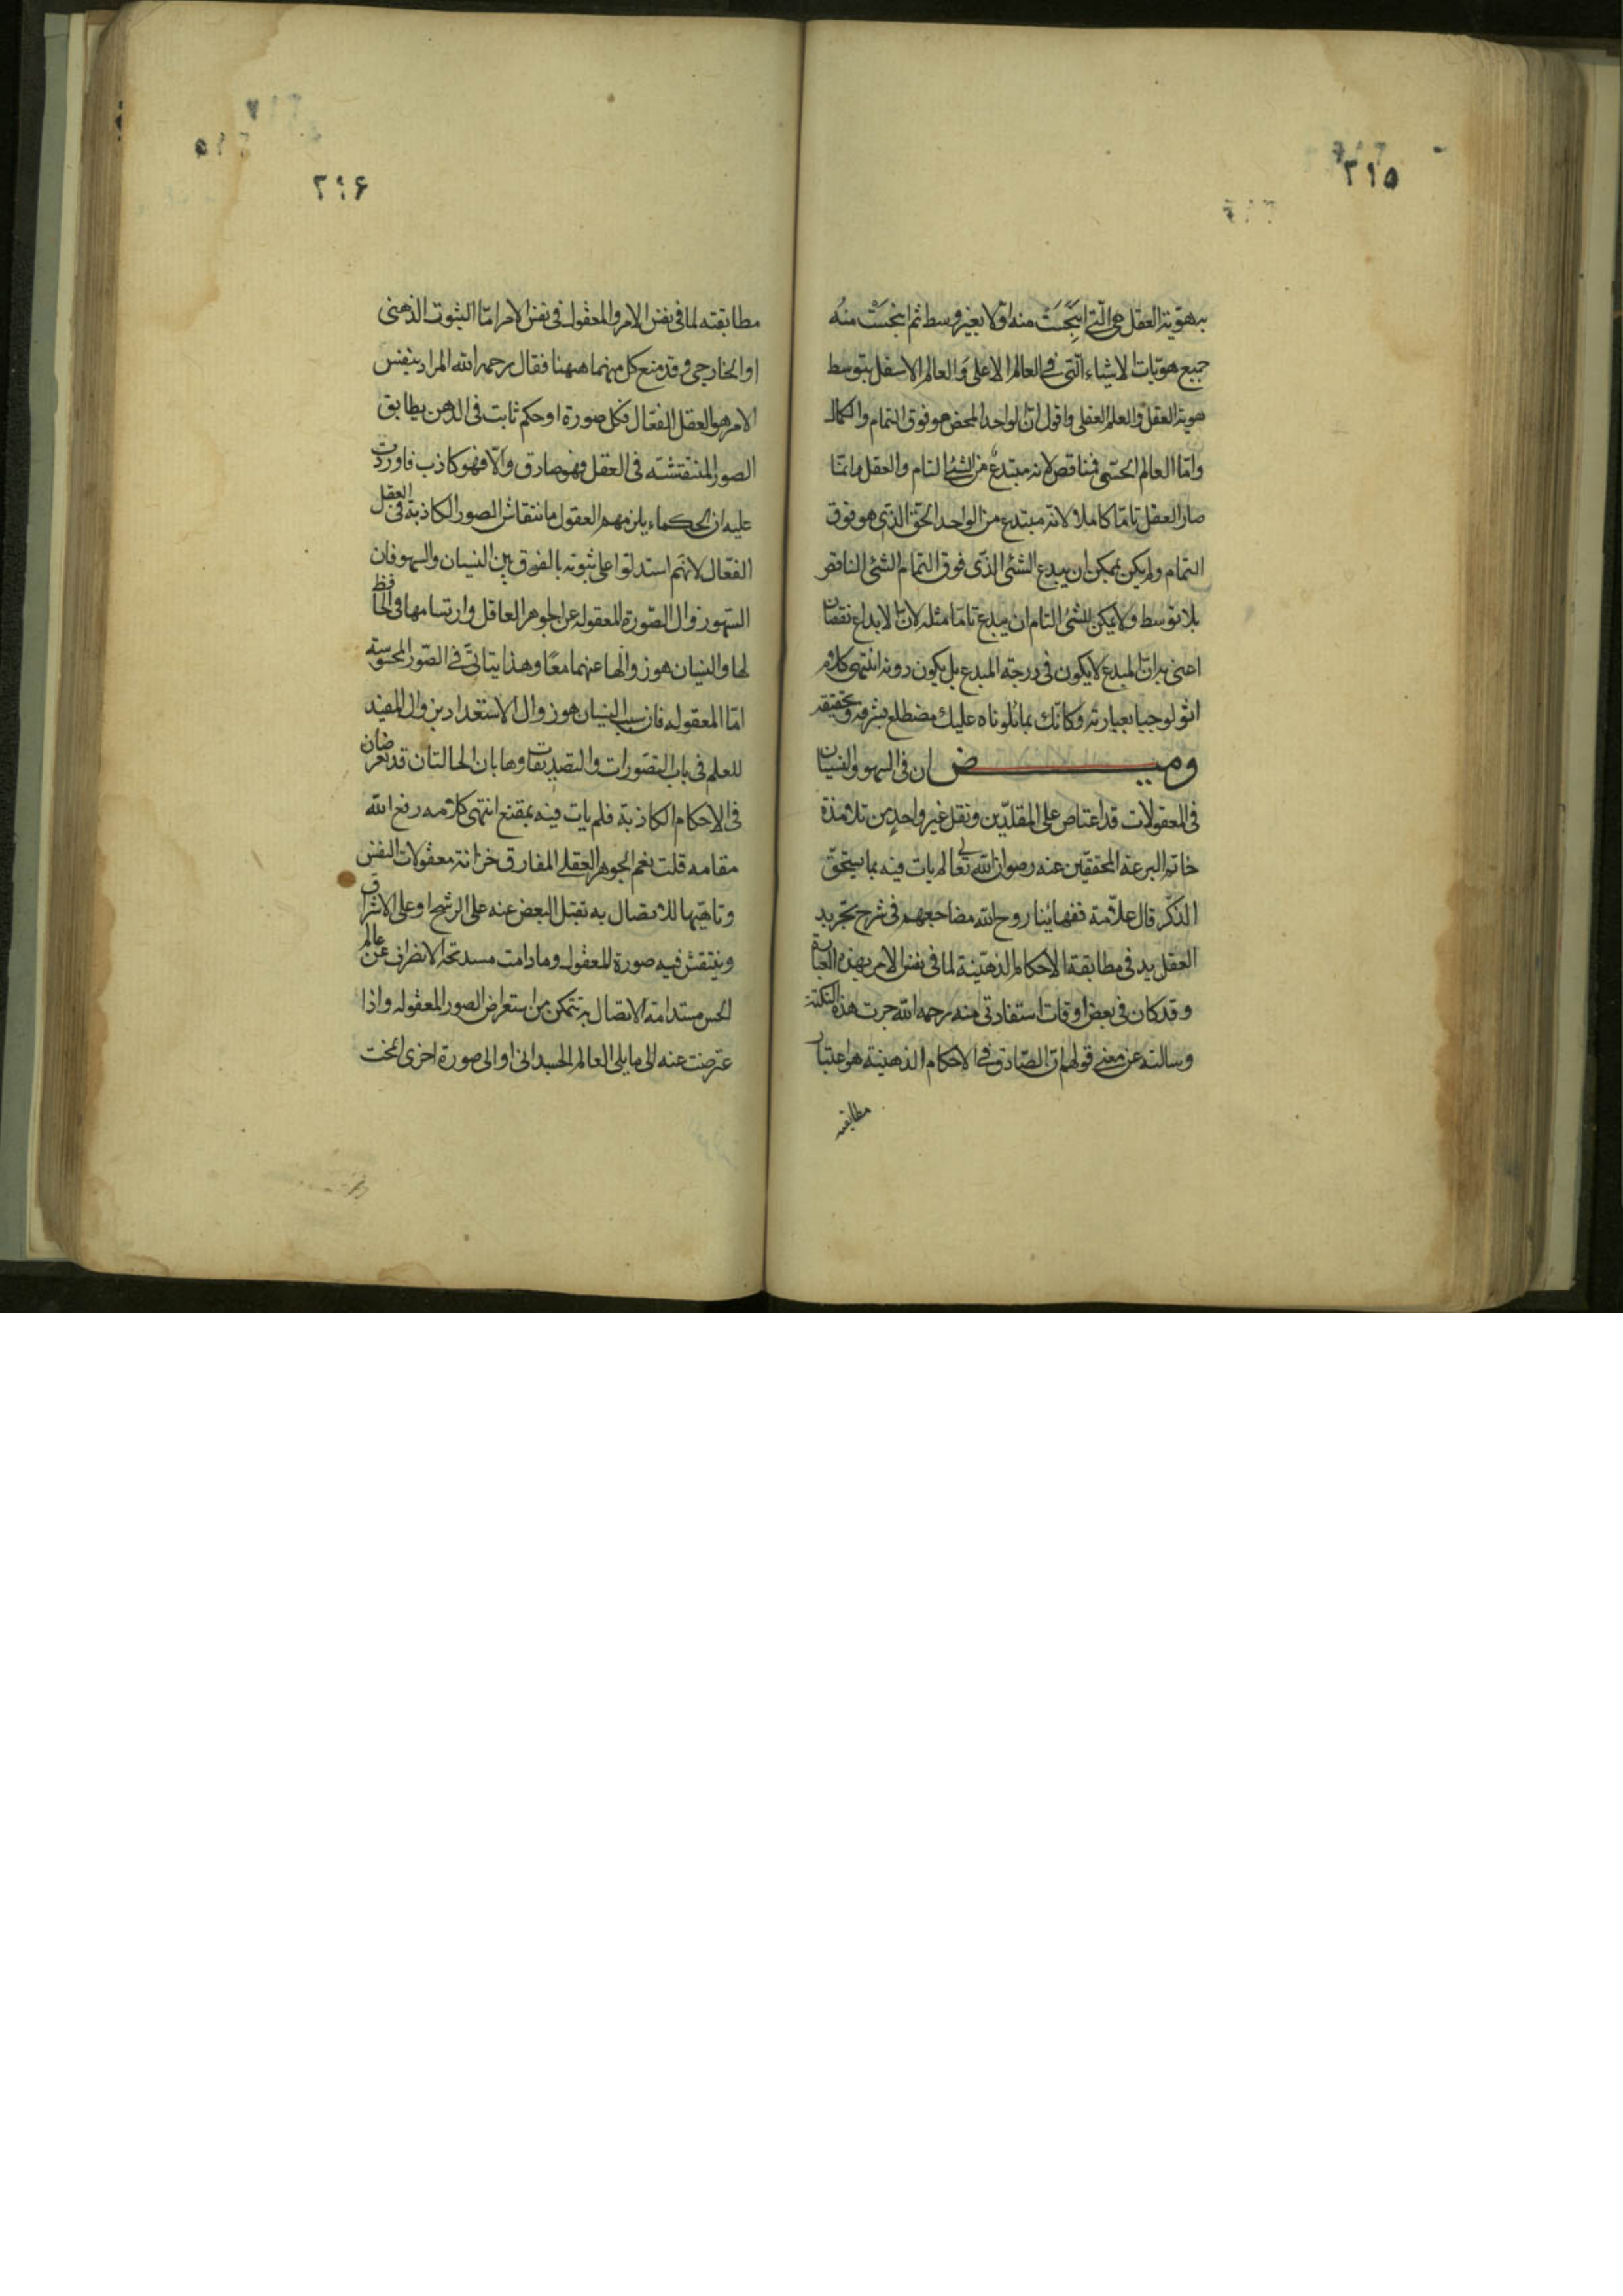 ٢١٥
به هوية العقل هى الّتى انبَجَسَتْ منه اوّلا بغير وسط ثم انبجسَتْ منهُ
جميع هويّات الاشياء الّتى فى العالم الاعلى وَالعالم الاسفل بتوسط
هوية العقل والعلم العقلى واقول انّ الواحد المحض هو فوق التمام والكمال
وامّا العالم الحسّى فناقص لانه مبتدعٌ من الشئ التام والعقل وانمّا
صار العقل تامّا كاملا لانّه مبتدع من الواحد الحّق الذّى هو فوق
التمام ولم يكن بممكن ان يبدع الشئى الذّى فوق التمام الشّئى الناقص
بلا توّسط ولا يمكن الشئى التام ان يبدع تامّا مثله لانّ الابداع نقصان
اعنى به انّ المبدع لا يكون فى درجة المبدع بل يكون دونه انتهى كلام
اثولوجيا بعبارته وكانّك بما تلوناه عليك مضطلع بشرفه وتحقيقه
وميض ان فى السهو والنسيان
فى المعقولات قد اعتاص على المقلدّين ونقل غير واحدٍ من تلامذة
خاتم البرعة المحققيّن عنه رضوان الله تعالى لم يات فيه بما يستحقّ
الذكر قال علاّمة فقهائنا روح الله مضاجعهم فى شرح تجريد
العقل يد فى مطابقة الاحكام الذهنيّة لما فى نفس الامر بهذه العبارة
وقد كان فى بعض اوقات استفادتى منه رحمه الله جرت هذه النكتة
وسالته عن معنى قولهم انّ الصّادق فى الاحكام الذهنية هو اعتبار
مطابقته
٢١۶
مطابقته لما فى نفس الامر والمعقول فى نفس الامر امّا الثبوت الذهنى
او الخارجى وقد منع كل منهما ههنا فقال رحمه الله المراد بنفس
الامر هو العقل الفعّال فكل صورة او حكم ثابت فى الذهن يطابق
الصور المنتقشته فى العقل فهو صادق والّا فهو كاذب فاوردت
عليه ان الحكماء يلزمهم العقول مانتقاش الصور الكاذبة فى العقل
الفعّال لانهّم استدلّوا على ثبوته بالفرق بين النسيان والسهو فان
السهو زوال الصّورة المعقوله عن الجوهر العاقل وارتسامها فى الحافظ
لها والنسيان هو زوالها عنهما معًا وهذا يتاتىّ فى الصّور المحسوسة
امّا المعقوله فان سبب النسيان هو زوال الاستعداد بزوال المفيد
للعلم فى باب التصّورات والتصديقات وها بان الحالتان قد تعرضان
فى الاحكام الكاذبة فلم يات فيه بمقنع انتهى كلامه رفع الله
مقامه قلت نعم الجوهر العقلى المفارق خزانة معقولات النفس
وتاهّبها للاتصال به تقبّل البعض عنه على الرشح او على الاشراق
وينتقش فيه صورة المعقول وما دامت مسدتحه الانظراف عن عالم
الحس مستدامة الاتصال به تتمكن من استعراض الصور المعقوله واذا
عرضت عنه الى ما يلى العالم الجسدانى او الى صورة اخرى انمخت